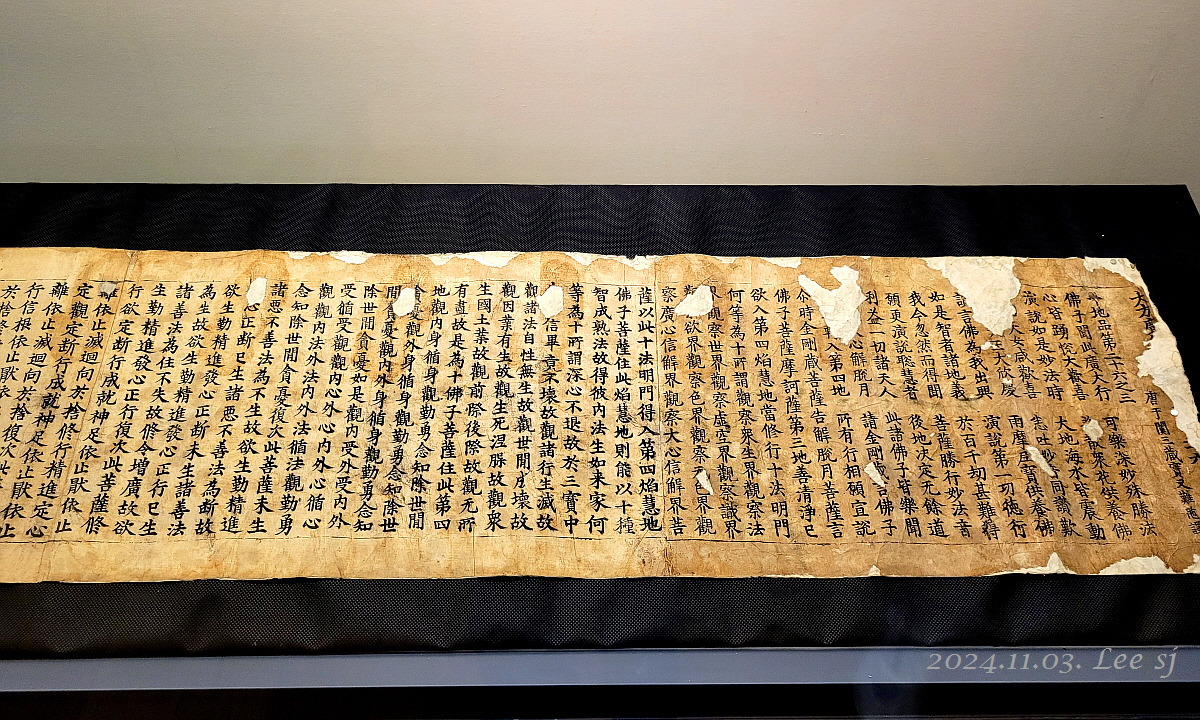 大方廣 唐于闐三藏實叉難
地品第二十六之三
佛子聞此廣大行 可樂深妙殊勝法
心皆踊悅大歡喜 普散衆花供養佛
演說如是妙法時 大地海水皆震動
天女咸歡喜 悉吐妙音同讚歎
在天 大欣慶 雨摩尼寶供養佛
讚言佛為我出興 演說第一功德行
如是智者諸地義 於百千劫甚難得
我今忽然而得聞 菩薩勝行妙法音
願更演說聰慧者 後地决定无餘道
利益一切諸天人 此諸佛子皆樂聞
心解脫月 請金剛 言佛子
入第四地 所有行相願宣說
尒時金剛藏菩薩告解脫月菩薩言
佛子菩薩摩訶薩第三地善清淨已
欲入第四焰慧地當修行十法明門
何等為十所謂觀察衆生界觀察法
界觀察世界觀察虛空界觀察識界
觀 欲界觀察色界觀察 界觀
察廣心信解界觀察大心信解界菩
薩以此十法明門得入第四焰慧地
佛子菩薩住此焰慧地則能以十種
智成熟法故得彼內法生如來家何
等為十所謂深心不退故於三寶中
信畢竟不壞故觀諸行生滅故
觀諸法自性無生故觀世間成壞故
觀因業有生故觀生死涅槃故觀衆
生國土業故觀前際後際故觀無所
有盡故是為十佛子菩薩住此第四
地觀內身循身觀勤勇念知除世間
貪憂觀外身循身觀勤勇念知除世
間貪憂觀內外身循身觀勤勇念知
除世間貪憂如是觀內受外受內外
受循受觀觀內心外心內外心循心
觀觀內法外法內外法循法觀勤勇
念知除世間貪憂復次此菩薩未生
諸惡不善法為不生故欲生勤精進
心正断已生諸惡不善法為断故
欲生勤精進發心正断未生諸善法
為生故欲生勤精進發心正行已生
諸善法為住不失故修令增廣故欲
生勤精進發心正行復次此菩薩修
行欲定断行成就神足依止猒依止
離依止滅迴向於捨修行精進定心
定觀定断行成就神足依止猒依止
離依止滅迴向於捨復次此菩薩修
行信根依止猒依止
於捨
2024.11.03. Lee sj